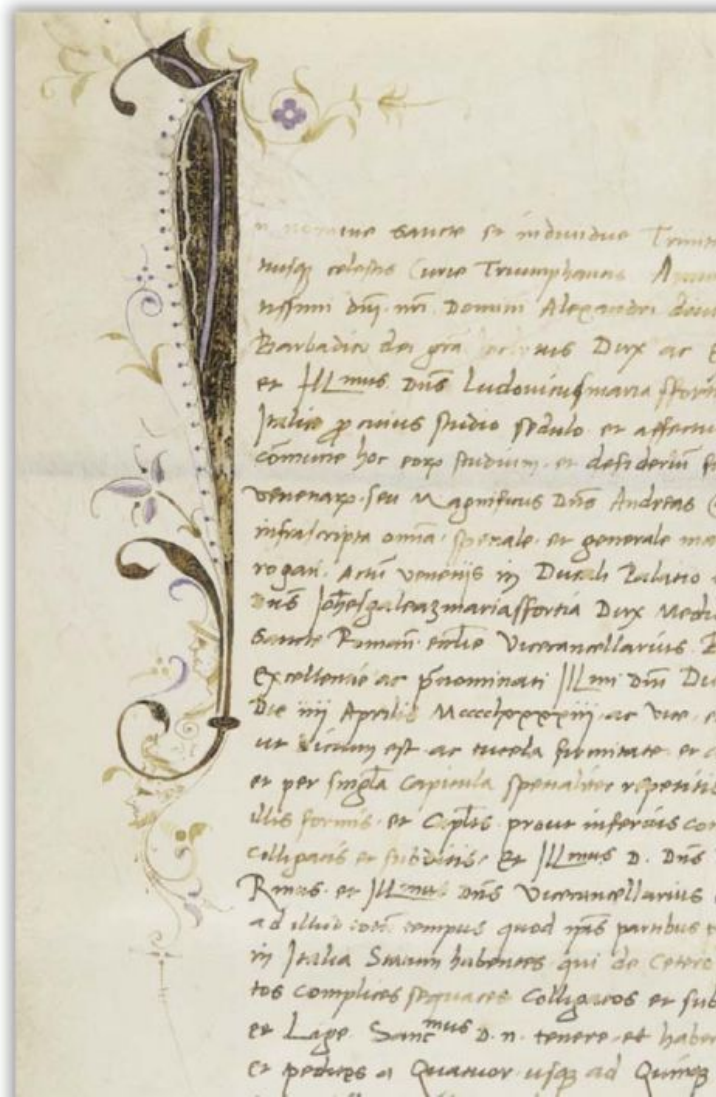 In nomine Sancte et individue Trinit
nusq celestis Curie Triumphantis. A
tissimi dni. nri. Domini Alexandri divi
Barbadico dei gra Dux ac
et Illmus Dns Ludovicus maria sfort
Italie p cuius studio sedulo et affectu
comune hoc eorp studium. et desiderium
venetiarp. seu Magnificus Dns Andreas
infrascripta omia. spetiale. et generale ma
rogari. Actu venetijs in Ducali Palatio
Dns Johesgaleazmariasfortia Dux Medio
Sancte Roman ecclie Vicecancellarius
Excellentie ac prenominati Illmi Dni Du
Die iiij Aprilis ac vice
ut dictum est ac tutela firmitate et
et per singla Capitula spetialiter repetitis
illis formis et Caplis prout inferius con
Colligatis et subditis. Et Illmus D. Dns
Rmus. et Illmus Dns Vicecancellarius
ad illud tempus quod partibus
in Italia Statum habentes qui de Cetero
tos Complices sequaces Colligatos et sub
et Lage. Sancmus D. n. tenere et haber
et pedites a Quatuor usq ad Quinq